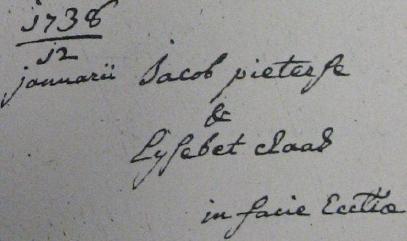 j738
j2
januarii Jacob pieterse
&
Lysebet claas
in facie Ecclĩæ